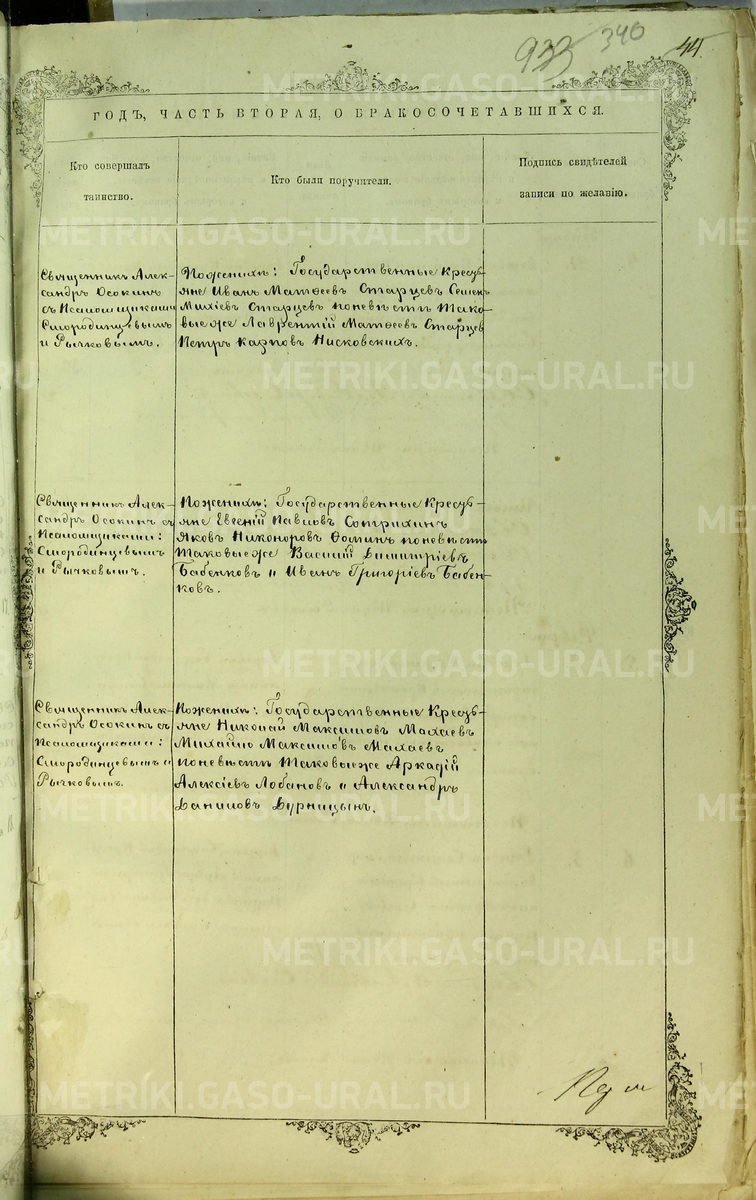 933 340 44.
ГОДЪ, ЧАСТЬ ВТОРАЯ, О БРАКОСОЧЕТАВШИХСЯ.
Кто совершалъ
таинство.
Кто были поручители.
Подпись свидѣтелей
записи по желанію.
Священникъ Алек-
сандръ Осокинъ
съ Псаломщиками
Смородинцевымъ
и Рычковымъ.
Поженихѣ: Государственные Кресть-
яне Иванъ Матѳеевъ Старцев Семен
Михіевъ Старцевъ поневѣстѣ Тако-
выеже Лаврентій Матѳеевъ Старцев
Петръ Карповъ Нисковскихъ.
Священникъ Алек-
сандръ Осокинъ съ
Псаломщиками:
Смородинцевымъ
и Рычковымъ.
Поженихѣ: Государственные Кресть-
яне Евгеній Павловъ
Яковъ Никоноровъ Ѳоминъ поневѣстѣ
Таковыеже Василій Димитріевъ
Бабенковъ и Иванъ Григоріевъ Бабен-
ковъ.
Священникъ Алек-
сандръ Осокинъ съ
Псаломщиками:
Смородинцевымъ и
Рычковымъ.
Поженихѣ: Государственные Кресть-
яне Николай Максимовъ Махаевъ
Михайло Максимовъ Махаевъ
поневѣстѣ Таковыеже Аркадій
Алексіевъ Лобановъ и Александръ
Даниловъ Дурницынъ.
METRIKI.GASO-URAL.RU